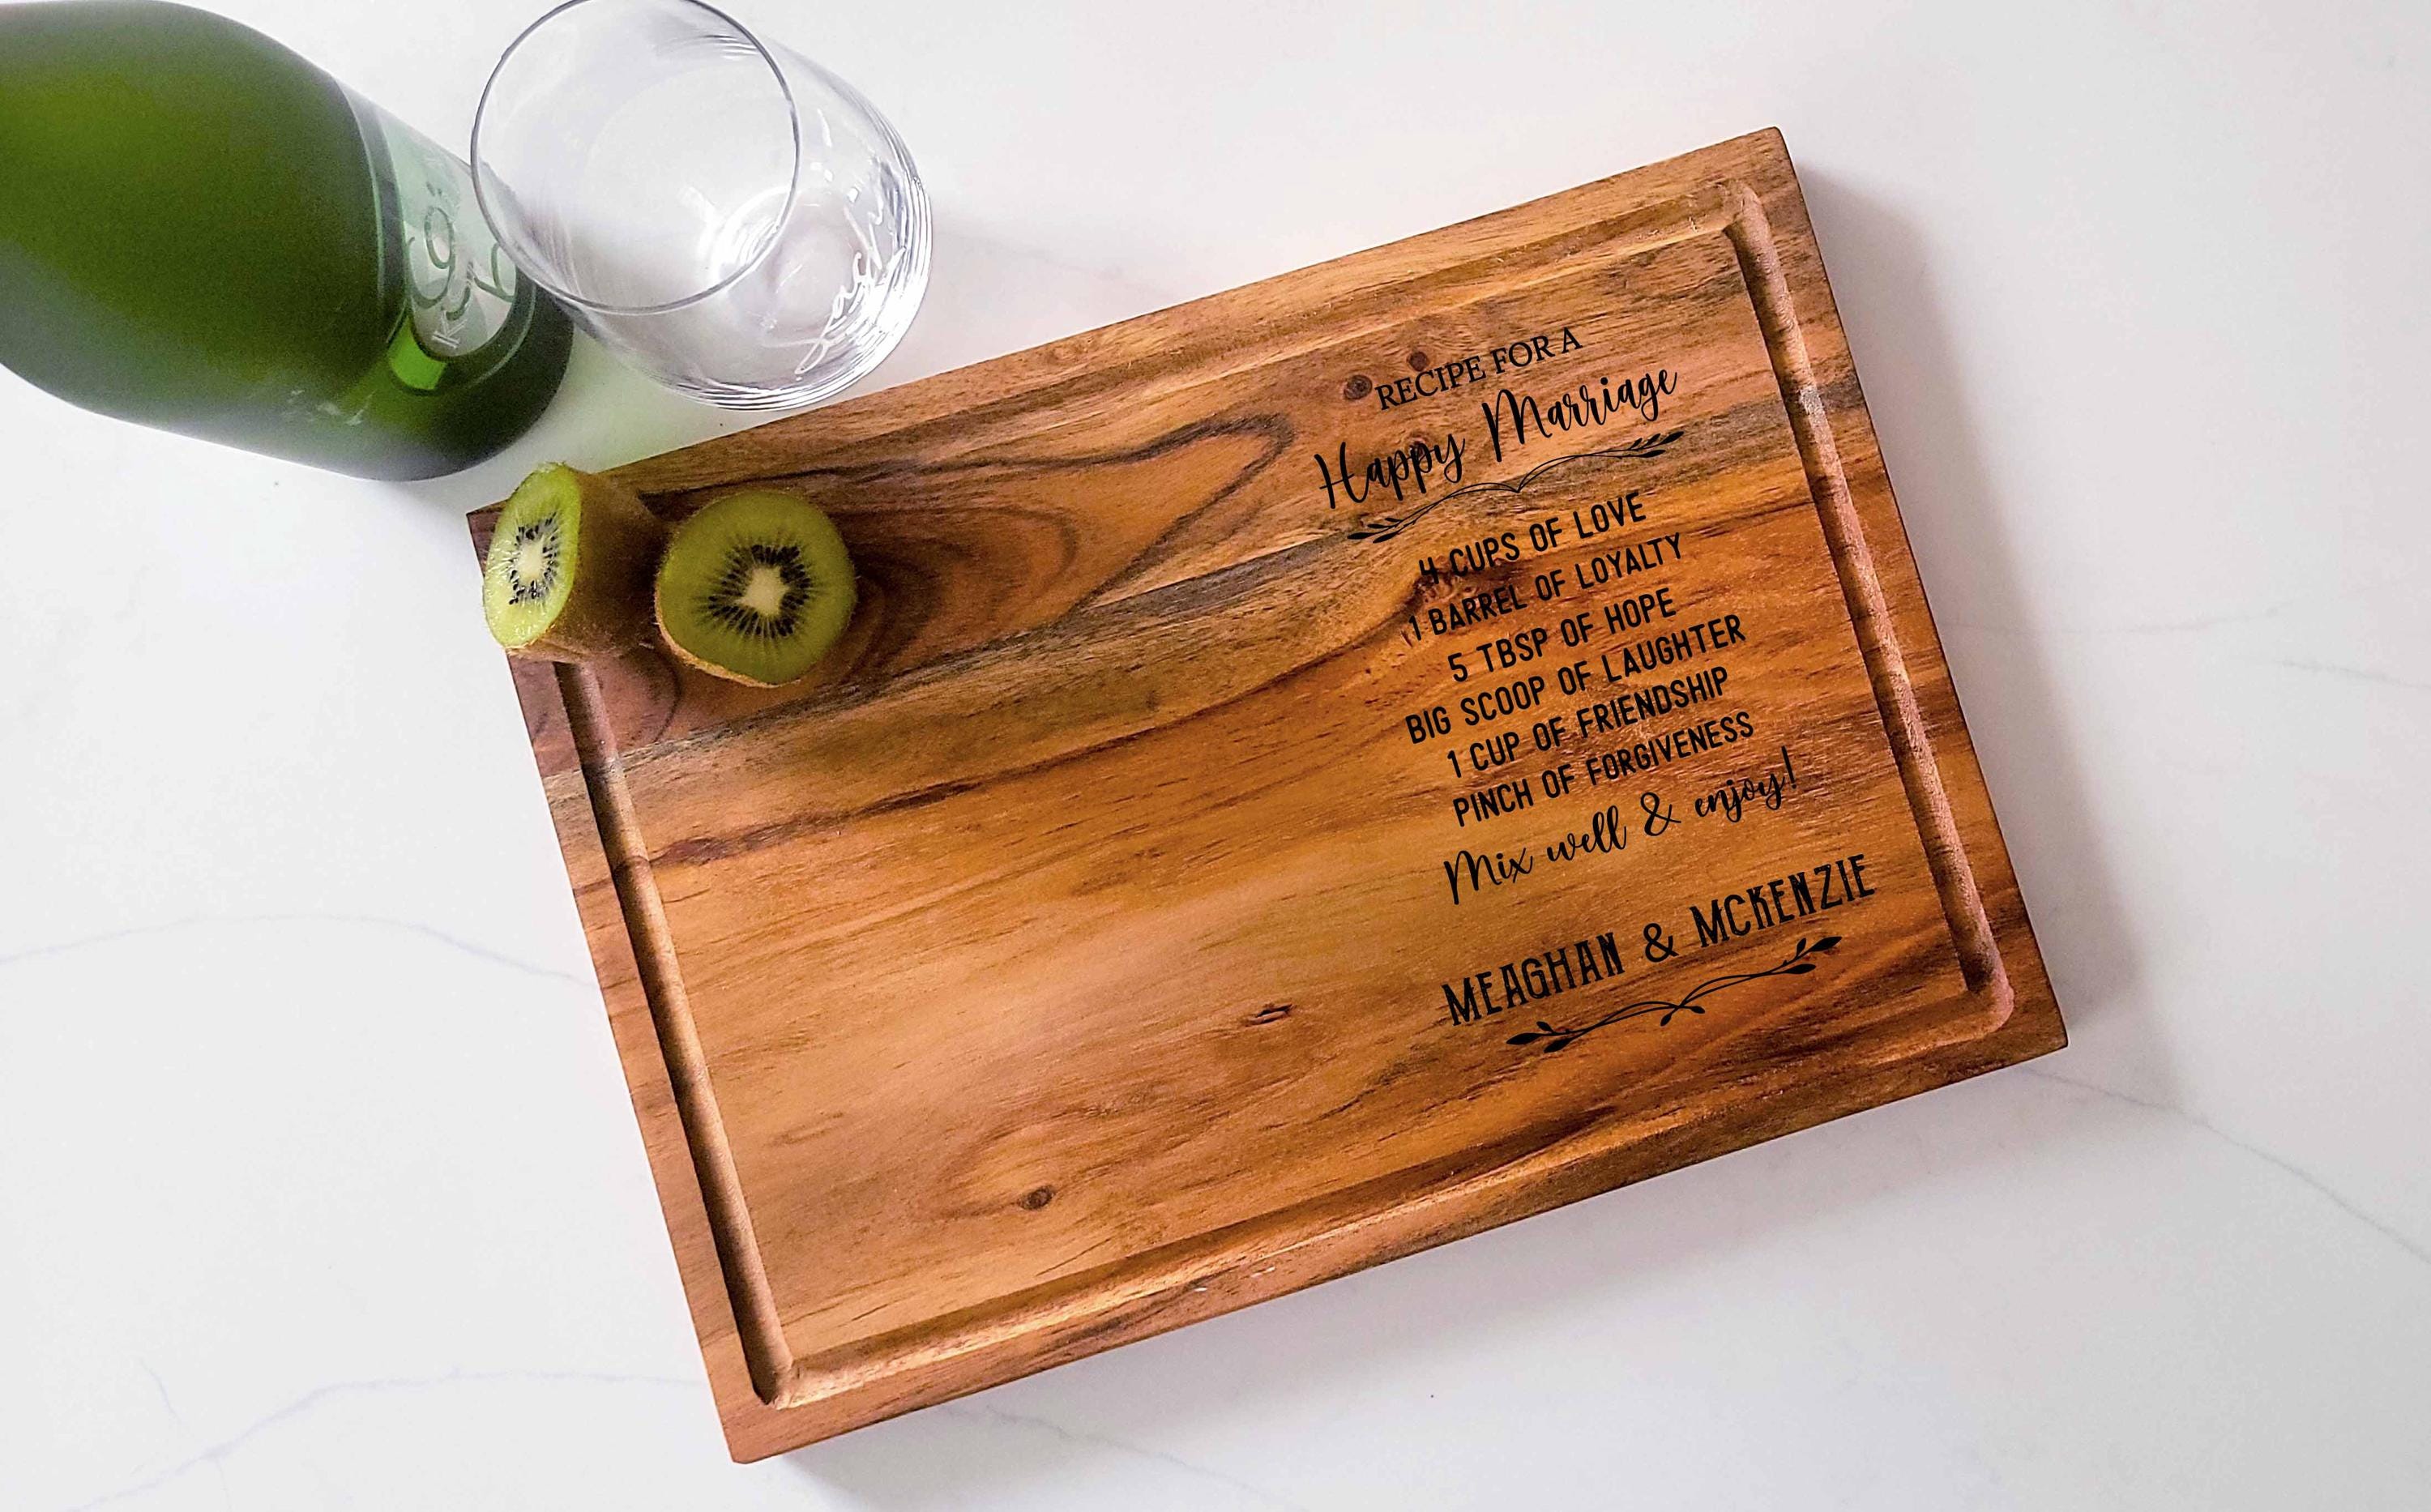 RECIPE FOR A
Happy Marriage
4 CUPS OF LOVE
1 BARREL OF LOYALTY
5 TBSP OF HOPE
BIG SCOOP OF LAUGHTER
1 CUP OF FRIENDSHIP
PINCH OF FORGIVENESS
Mix well & enjoy!
MEAGHAN & MCKENZIE